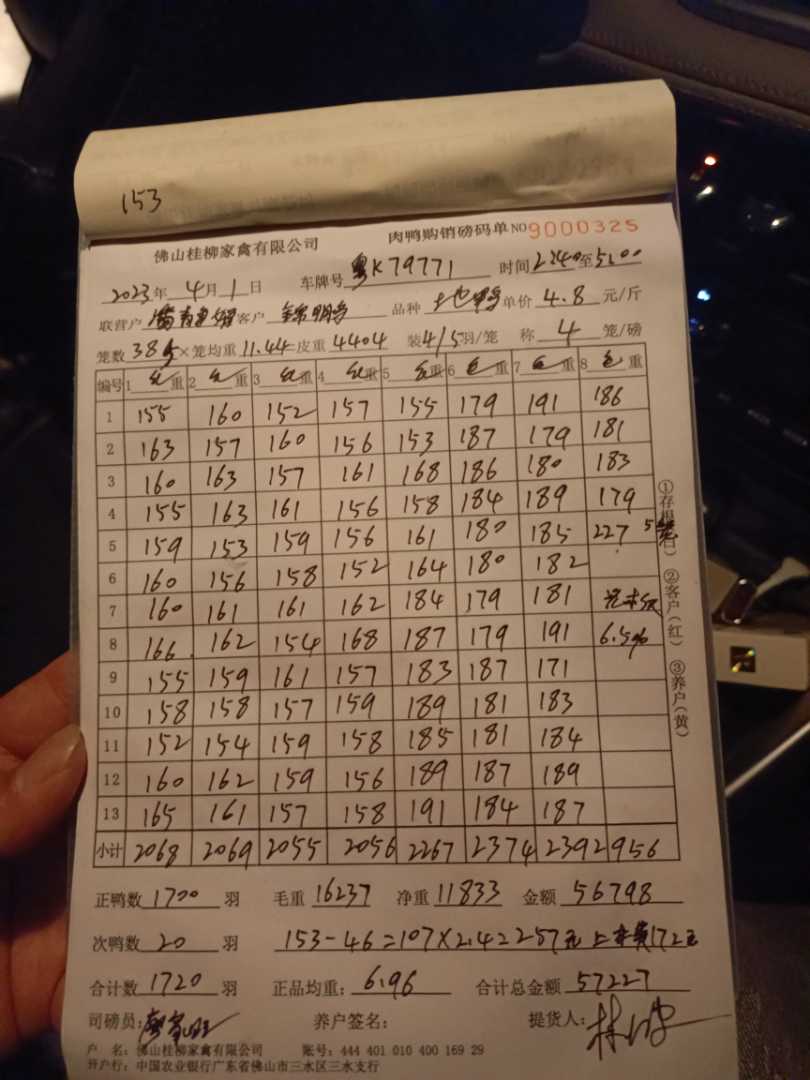 153
佛山桂柳家禽有限公司 肉鸭购销磅码单 NO 9000325
2023年 4月 1日 车牌号 粤K79771 时间 2240至5:00
联营户 客户 品种 土也鸭 单价 4.8 元/斤
笼数 385 ×笼均重 11.44 皮重 4404 装4/5羽/笼 称 4 笼/磅
编号 1 毛重 2 毛重 3 毛重 4 毛重 5 毛重 6 毛重 7 毛重 8 毛重
1 155 160 152 157 155 179 191 186
2 163 157 160 156 153 187 179 181
3 160 163 157 161 168 186 180 183
4 155 163 161 156 158 184 189 179
5 159 153 159 156 161 180 185 227 5笼
6 160 156 158 152 164 180 182
7 160 161 161 162 184 179 181
8 166 162 154 168 187 179 191 6.596
9 155 159 161 157 183 187 171
10 158 158 157 159 189 181 183
11 152 154 159 158 185 181 184
12 160 162 159 156 189 187 189
13 165 161 157 158 191 184 187
小计 2068 2069 2055 2056 2267 2374 2392 956
①存根(白) ②客户(红) ③养户(黄)
正鸭数 1700 羽 毛重 16237 净重 11833 金额 56798
次鸭数 20 羽 153-46=107×2.4=257元 上车费172元
合计数 1720 羽 正品均重: 6.96 合计总金额 57227
司磅员: 养户签名: 提货人:
户 名: 佛山桂柳家禽有限公司 账号: 444 401 010 400 169 29
开户行: 中国农业银行广东省佛山市三水区三水支行